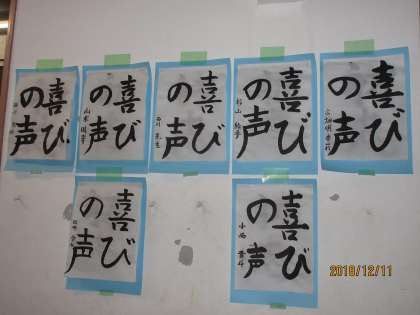 喜び
の声
喜び
の声
喜び
の声
喜び
の声
喜び
の声
喜び
の声
喜び
の声
2018/12/11